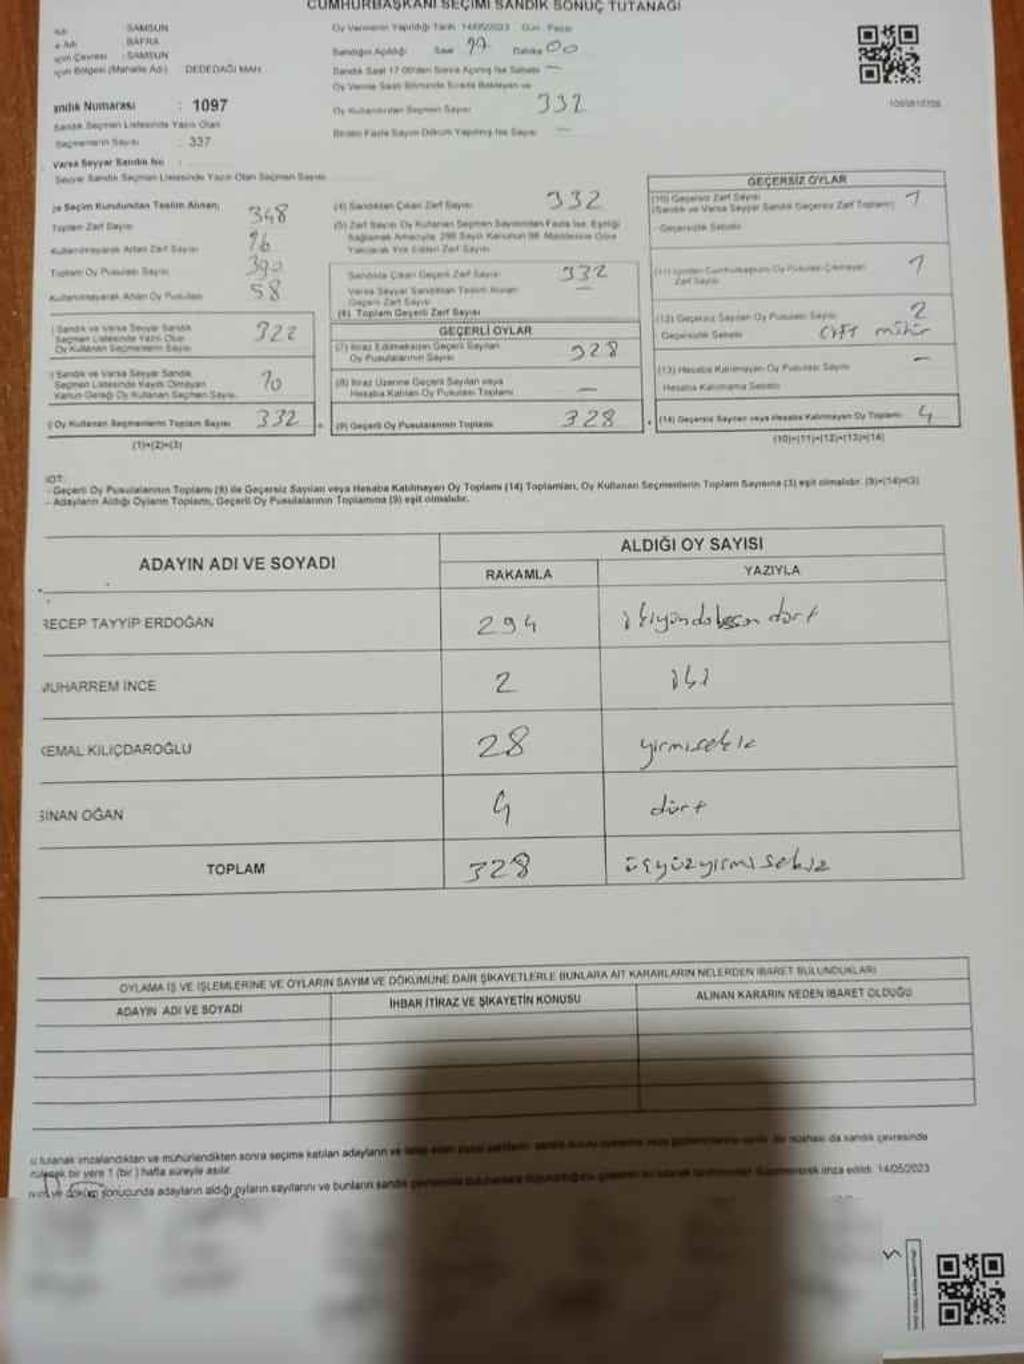 CUMHURBAŞKANI SEÇİMİ SANDIK SONUÇ TUTANAĞI
SAMSUN
BAFRA
SAMSUN
DEDEDAĞI MAH.
Oy Vermenin Yapıldığı Tarih 14/05/2023 Gün Pazar
Sandığın Açıldığı Saat 17 Dakika 00
Sandık Saat 17.00'den Sonra Açılmış İse Sebebi —
Oy Kullandırılan Seçmen Sayısı 332
Birden Fazla Sayım Döküm Yapılmış İse Sayısı —
1097
Sandık Seçmen Listesinde Yazılı Olan
Seçmenlerin Sayısı : 337
Varsa Seyyar Sandık No :
Seyyar Sandık Seçmen Listesinde Yazılı Olan Seçmen Sayısı
Toplam Zarf Sayısı 348
Kullanılmayarak Artan Zarf Sayısı 16
Toplam Oy Pusulası Sayısı 390
Kullanılmayarak Artan Oy Pusulası 58
Sandık ve Varsa Seyyar Sandık
Seçmen Listesinde Yazılı Olup
Oy Kullanan Seçmenlerin Sayısı 322
Sandık ve Varsa Seyyar Sandık
Seçmen Listesinde Kayıtlı Olmayan
Kanun Gereği Oy Kullanan Seçmen Sayısı 10
Oy Kullanan Seçmenlerin Toplam Sayısı 332
(1)+(2)=(3)
(4) Sandıktan Çıkan Zarf Sayısı 332
(5) Zarf Sayısı Oy Kullanan Seçmen Sayısından Fazla İse, Eşitliği
Sağlamak Amacıyla 298 Sayılı Kanunun 98. Maddesine Göre
Yakılarak Yok Edilen Zarf Sayısı
Sandıkta Çıkan Geçerli Zarf Sayısı 332
Varsa Seyyar Sandıktan Teslim Alınan
Geçerli Zarf Sayısı —
(6) Toplam Geçerli Zarf Sayısı
GEÇERLİ OYLAR
(7) İtiraz Edilmeksizin Geçerli Sayılan
Oy Pusulalarının Sayısı 328
(8) İtiraz Üzerine Geçerli Sayılan veya
Hesaba Katılan Oy Pusulası Toplamı —
(9) Geçerli Oy Pusulalarının Toplamı 328
GEÇERSİZ OYLAR
(10) Geçersiz Zarf Sayısı 1
(Sandık ve Varsa Seyyar Sandık Geçersiz Zarf Toplamı)
Geçersizlik Sebebi
Zarf Sayısı 1
(12) Geçersiz Sayılan Oy Pusulası Sayısı 2
Geçersizlik Sebebi çift mühür
(13) Hesaba Katılmayan Oy Pusulası Sayısı —
Hesaba Katılmama Sebebi
(14) Geçersiz Sayılan veya Hesaba Katılmayan Oy Toplamı 4
(10)+(11)+(12)+(13)=(14)
- Geçerli Oy Pusulalarının Toplamı (9) ile Geçersiz Sayılan veya Hesaba Katılmayan Oy Toplamı (14) Toplamları, Oy Kullanan Seçmenlerin Toplam Sayısına (3) eşit olmalıdır. (9)+(14)=(3)
- Adayların Aldığı Oyların Toplamı, Geçerli Oy Pusulalarının Toplamına (9) eşit olmalıdır.
ADAYIN ADI VE SOYADI
ALDIĞI OY SAYISI
RAKAMLA
YAZIYLA
RECEP TAYYİP ERDOĞAN 294
MUHARREM İNCE 2 iki
KEMAL KILIÇDAROĞLU 28 yirmisekiz
SİNAN OĞAN 4 dört
TOPLAM 328 üçyüzyirmisekiz
OYLAMA İŞ VE İŞLEMLERİNE VE OYLARIN SAYIM VE DÖKÜMÜNE DAİR ŞİKAYETLERLE BUNLARA AİT KARARLARIN NELERDEN İBARET BULUNDUKLARI
ADAYIN ADI VE SOYADI
İHBAR İTİRAZ VE ŞİKAYETİN KONUSU
ALINAN KARARIN NEDEN İBARET OLDUĞU
tutanak imzalandıktan ve mühürlendikten sonra seçime katılan adayların ve
bir yere 1 (bir) hafta süreyle asılır.
ve döküm sonucunda adayların aldığı oyların sayılarını ve bunların imza edildi. 14/05/2023